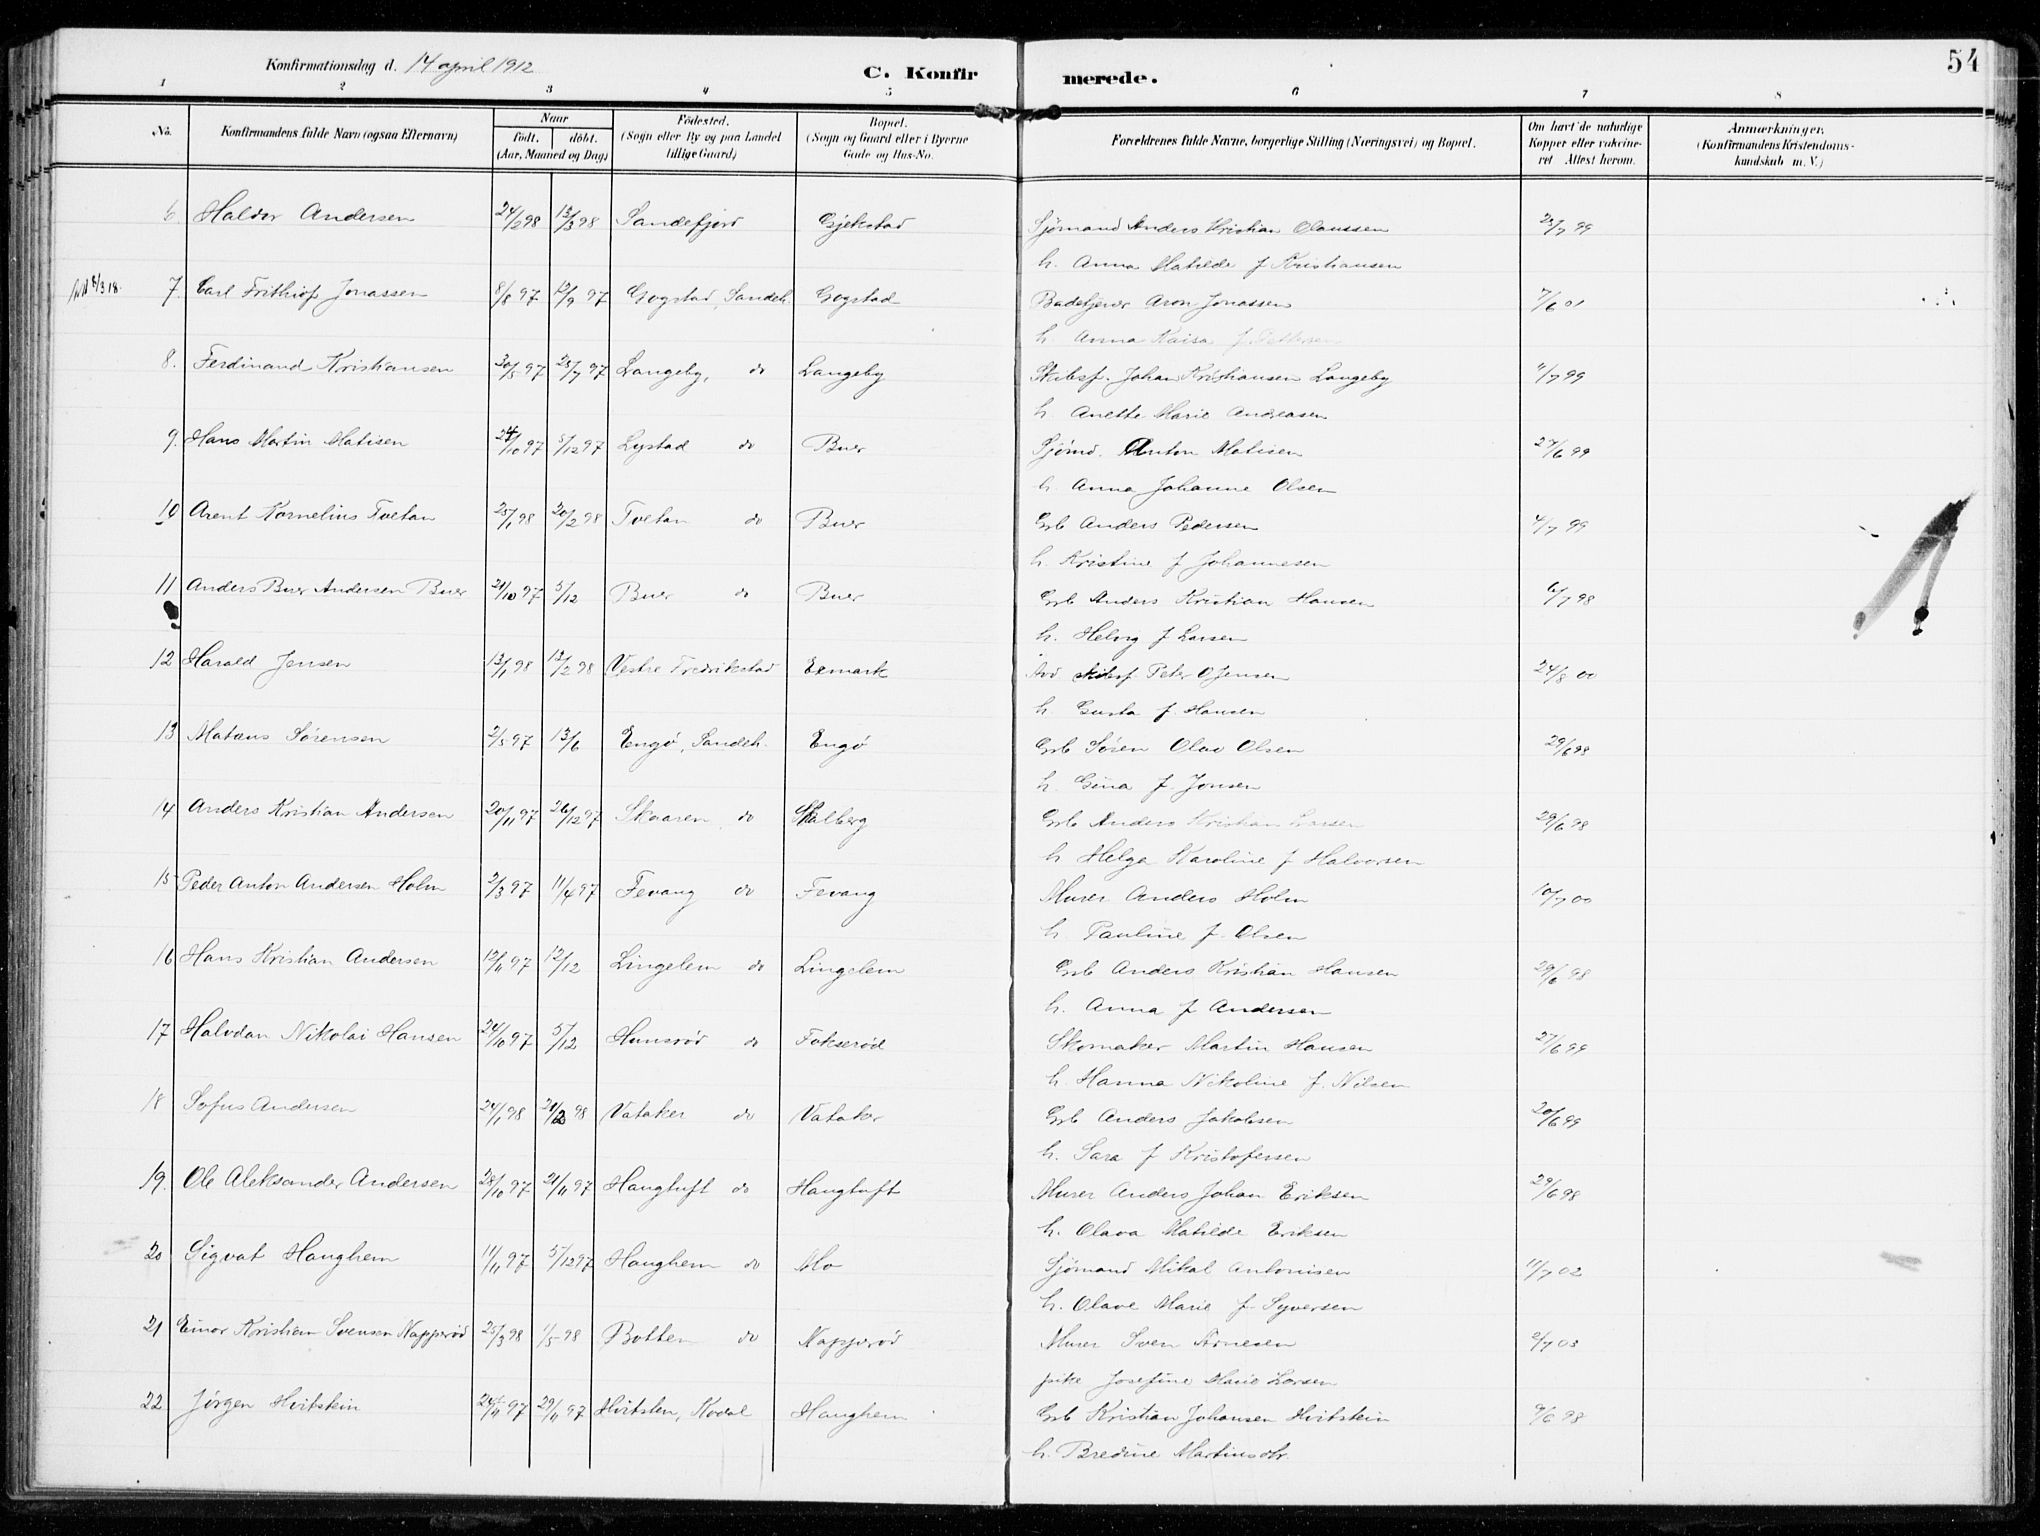 Konfirmationsdag d. 14 april 1912
C. Konfir merede.
54
1 2 3 4 5 6 7 8
No.
Konfirmandens fulde Navn (ogsaa Efternavn)
Naar
født. døbt.
(Aar, Maaned og Dag)
Fødested.
(Sogn eller By og paa Landet
tillige Gaard)
Bopæl.
(Sogn og Gaard eller i Byerne
Gade og Hus-No.
Forældrenes fulde Navne, borgerlige Stilling (Næringsvei) og Bopæl.
Om havt de naturlige
Kopper eller vakcine-
ret Attest herom.
Anmærkninger.
(Konfirmandens Kristendoms-
kundskab m. V.)
6. Haldor Andersen 24/2 98 13/3 98 Sandefjord Gjekstad Sjømand Anders Kristian Olaussen 25/7 99
h. Anna Matilde f Kristiansen
7. Carl Frithiof Jonassen 8/8 97 12/9 97 Gogstad, Sandeh. Gogstad Badetjener Aron Jonassen 7/6 01
h. Anna Kaisa f Pettersen
8. Ferdinand Kristiansen 30/5 97 25/7 97 Langeby, do Langeby Skibsf. Johan Kristiansen Langeby 11/7 99
h. Anette Marie Andreasen
9. Hans Martin Matisen 24/10 97 5/12 97 Lystad do Buer Sjømd. Anton Matisen 27/6 99
h. Anna Johanne Olsen
10 Arent Kornelius Tvetan 25/1 98 20/2 98 Tvetan do Buer Grb Anders Pedersen 4/7 99
h. Kristine f Johannesen
11 Anders Buer Andersen Buer 21/10 97 5/12 Buer do Buer Grb Anders Kristian Hansen 6/7 98
h. Helvig f Larsen
12 Harald Jensen 13/1 98 13/2 98 Vestre Fredrikstad Exmark Avd skibsf Peter O Jensen 24/8 00
h. Gusta f. Hansen
13 Matæus Sørensen 2/5 97 13/6 Engø, Sandeh. Engø Grb Søren Olav Olsen 29/6 98
h. Gina f. Jonsen
14 Anders Kristian Andersen 20/11 97 26/12 97 Skaaren do Skalberg Grb Anders Kristian Larsen 29/6 98
h Helga Karoline f Halvorsen
15 Peder Anton Andersen Holm 2/3 97 11/4 97 Fevang do Fevang Murer Anders Holm 10/7 00
h. Pauline f. Olsen
16 Hans Kristian Andersen 12/11 97 12/12 Lingelem do Lingelem Grb Anders Kristian Hansen 29/6 98
h. Anna f Andersen
17 Halvdan Nikolai Hansen 24/10 97 5/12 Hunsrød do Fokserød Skomaker Martin Hansen 27/6 99
h. Hanna Nikoline f. Nilsen
18 Sofus Andersen 24/1 98 21/2 98 Vataker do Vataker Grb Anders Jakobsen 20/6 99
h. Sara f Kristofersen
19. Ole Aleksander Andersen 28/10 97 21/11 97 Haugtuft do Haugtuft Murer Anders Johan Eriksen 29/6 98
h. Olava Matilde Eriksen
20 Sigvat Haughem 11/11 97 5/12 97 Haughem do Mo Sjømand Mikal Antonisen 11/7 02
h. Olave Marie f. Syversen
21 Einar Kristian Svensen Napperød 25/3 98 1/5 98 Botten do Napperød Murer Sven Arnesen 2/7 03
pike Josefine Marie Larsen
22 Jørgen Hvitstein 24/11 97 29/11 97 Hvitsten, Kodal Haughem Grb Kristian Johansen Hvitstein 9/6 98
h. Bredine Martinsdtr.